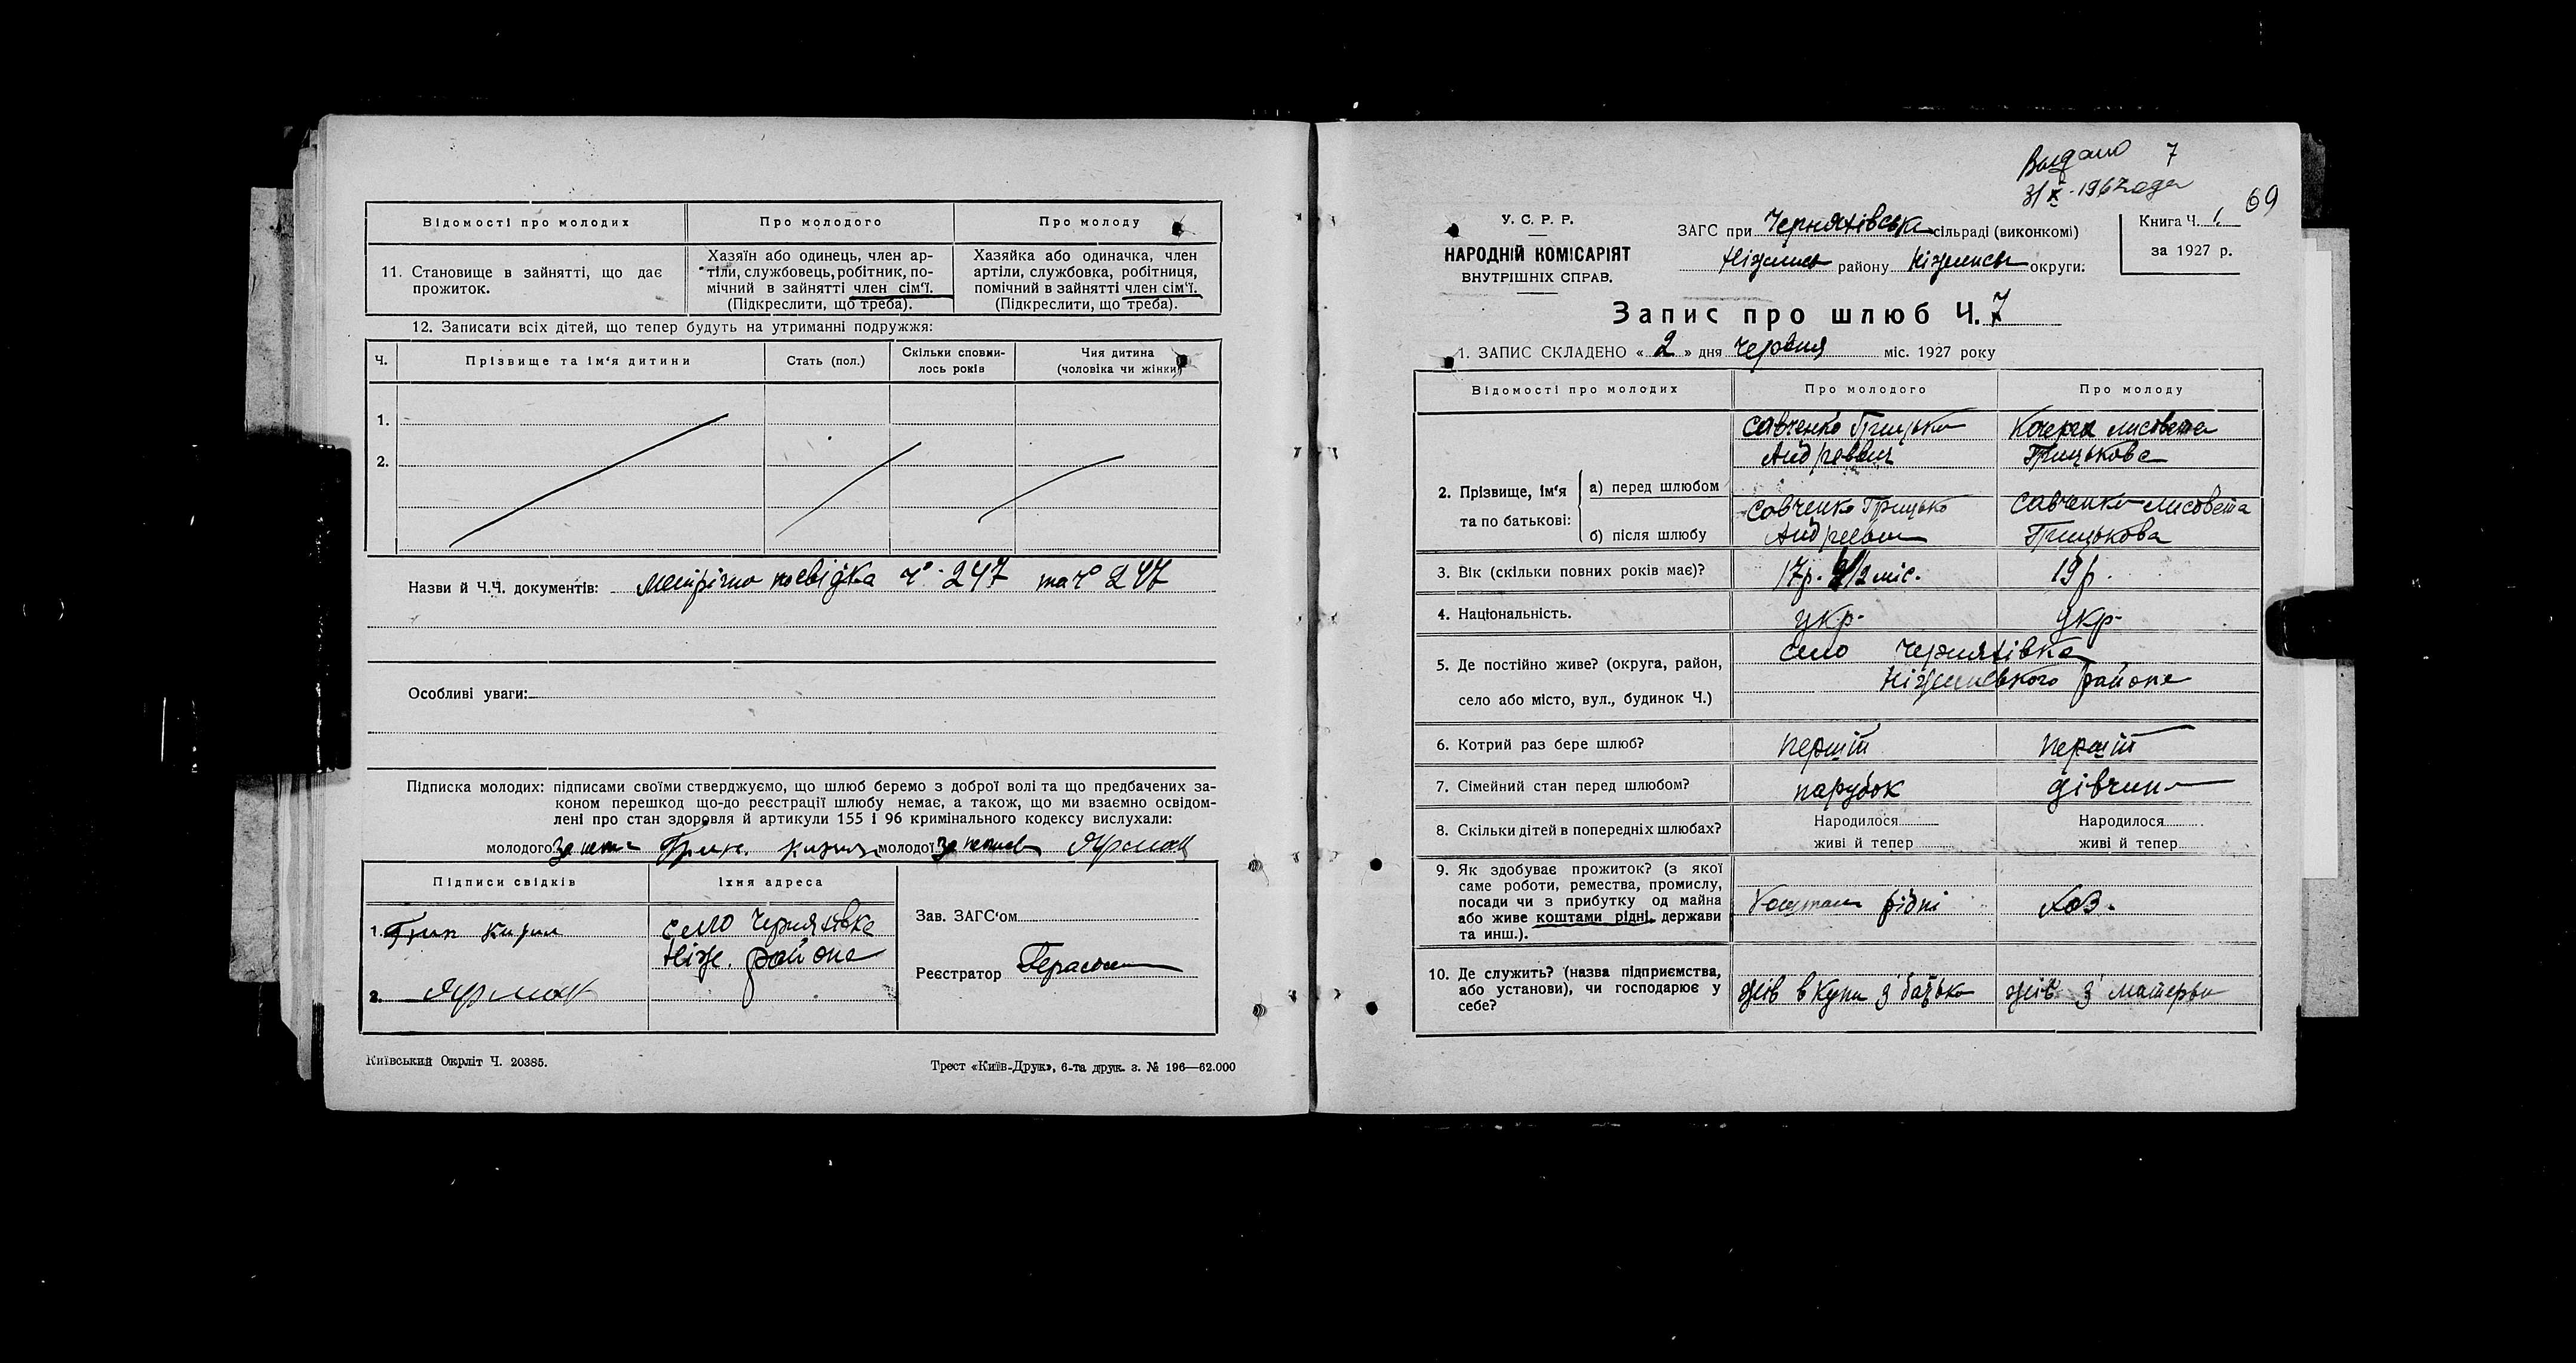 Відомості про молодих
Про молодого
Про молоду
11. Становище в зайнятті, що дає прожиток.
Хазяїн або одинець, член ар-
тіли, службовець, робітник, по-
мічний в зайнятті член сім'ї.
(Підкреслити, що треба).
Хазяйка або одиначка, член
артіли, службовка, робітниця,
помічний в зайнятті член сім'ї.
(Підкреслити, що треба).
12. Записати всіх дітей, що тепер будуть на утриманні подружжя:
Ч.
Прізвище та ім'я дитини
Стать (пол.)
Скільки сповни-
лось років
Чия дитина
(чоловіка чи жінки)
1.
2.
Назви й Ч.Ч. документів: посвідка ч° 247 та ч° 247
Особливі уваги:
Підписка молодих: підписами своїми стверджуємо, що шлюб беремо з доброї волі та що предбачених за-
коном перешкод що-до реєстрації шлюбу немає, а також, що ми взаємно освідом-
лені про стан здоровля й артикули 155 і 96 кримінального кодексу вислухали:
молодого молодої
Підписи свідків
Їхня адреса
1.
село Черняхівка
Ніж. района
2.
Зав. ЗАГС'ом
Реєстратор
Київський Окрліт Ч. 20385.
Трест «Київ-Друк», 6-та друк. з. № 196—62.000
7
31 X 1967 года
69
У. С. Р. Р.
НАРОДНІЙ КОМІСАРІЯТ
ВНУТРІШНІХ СПРАВ.
ЗАГС при Черняхівська сільраді (виконкомі)
району округи.
Книга Ч. 1
за 1927 р.
Запис про шлюб Ч. 7
1. ЗАПИС СКЛАДЕНО « 2 » дня червня міс. 1927 року
Відомості про молодих
Про молодого
Про молоду
2. Прізвище, ім'я
та по батькові:
а) перед шлюбом
Савченко Грицько
Андреевич
лисовета
Грицькова
б) після шлюбу
Савченко Грицько
Андреевич
Савченко лисовета
Грицькова
3. Вік (скільки повних років має)?
17р. 2 міс.
19 р.
4. Національність.
укр.
укр.
5. Де постійно живе? (округа, район,
село або місто, вул., будинок Ч.)
село Черняхівка
района
6. Котрий раз бере шлюб?
перший
перший
7. Сімейний стан перед шлюбом?
парубок
дівчина
8. Скільки дітей в попередніх шлюбах?
Народилося
живі й тепер
Народилося
живі й тепер
9. Як здобуває прожиток? (з якої
саме роботи, ремества, промислу,
посади чи з прибутку од майна
або живе коштами рідні, держави
та инш.).
Коштами рідні
хоз.
10. Де служить? (назва підприємства,
або установи), чи господарює у
себе?
жів вкупи з батько
жів з матерью